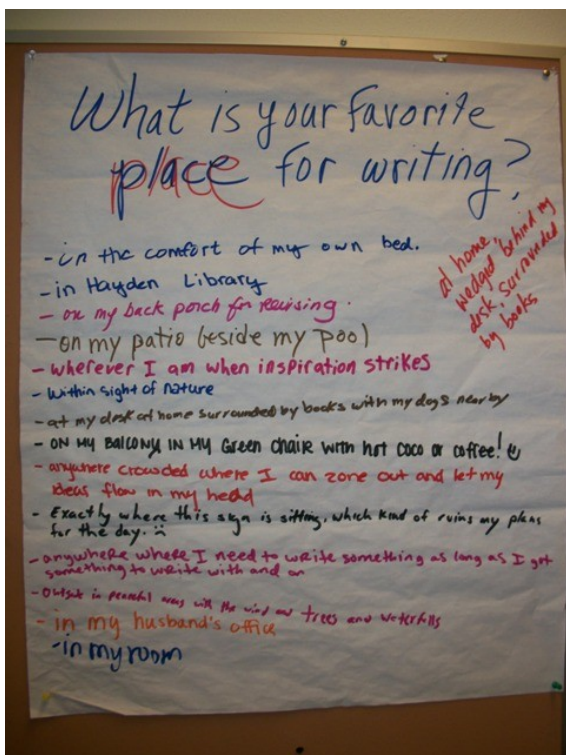 What is your favorite
place for writing?
at home,
wedged behind my
desk, surrounded
by books
-in the comfort of my own bed.
-in Hayden Library
- on my back porch for revising.
-on my patio beside my pool
- wherever I am when inspiration strikes
- Within sight of nature
-at my desk at home surrounded by books with my dogs nearby
- ON MY BALCONY IN MY Green chair with hot coco or coffee!
- anywhere crowded where I can zone out and let my
ideas flow in my head
- Exactly where this sign is sitting, which kind of ruins my plans
for the day.
- anywhere where I need to write something as long as I got
something to write with and on
- in peaceful areas with the wind and trees and waterfalls
- in my husband's office
-in my room